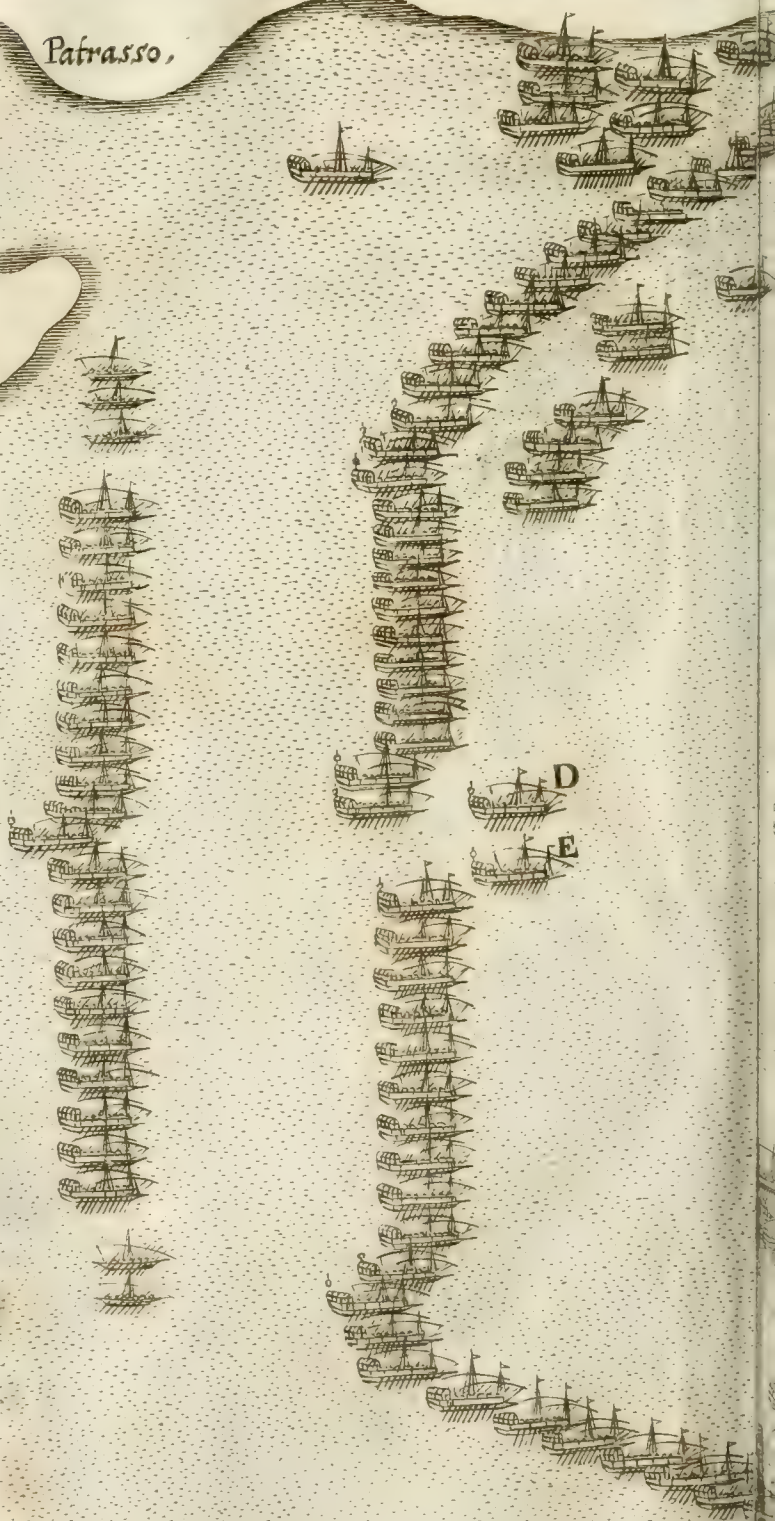 Patrasso,
D
E